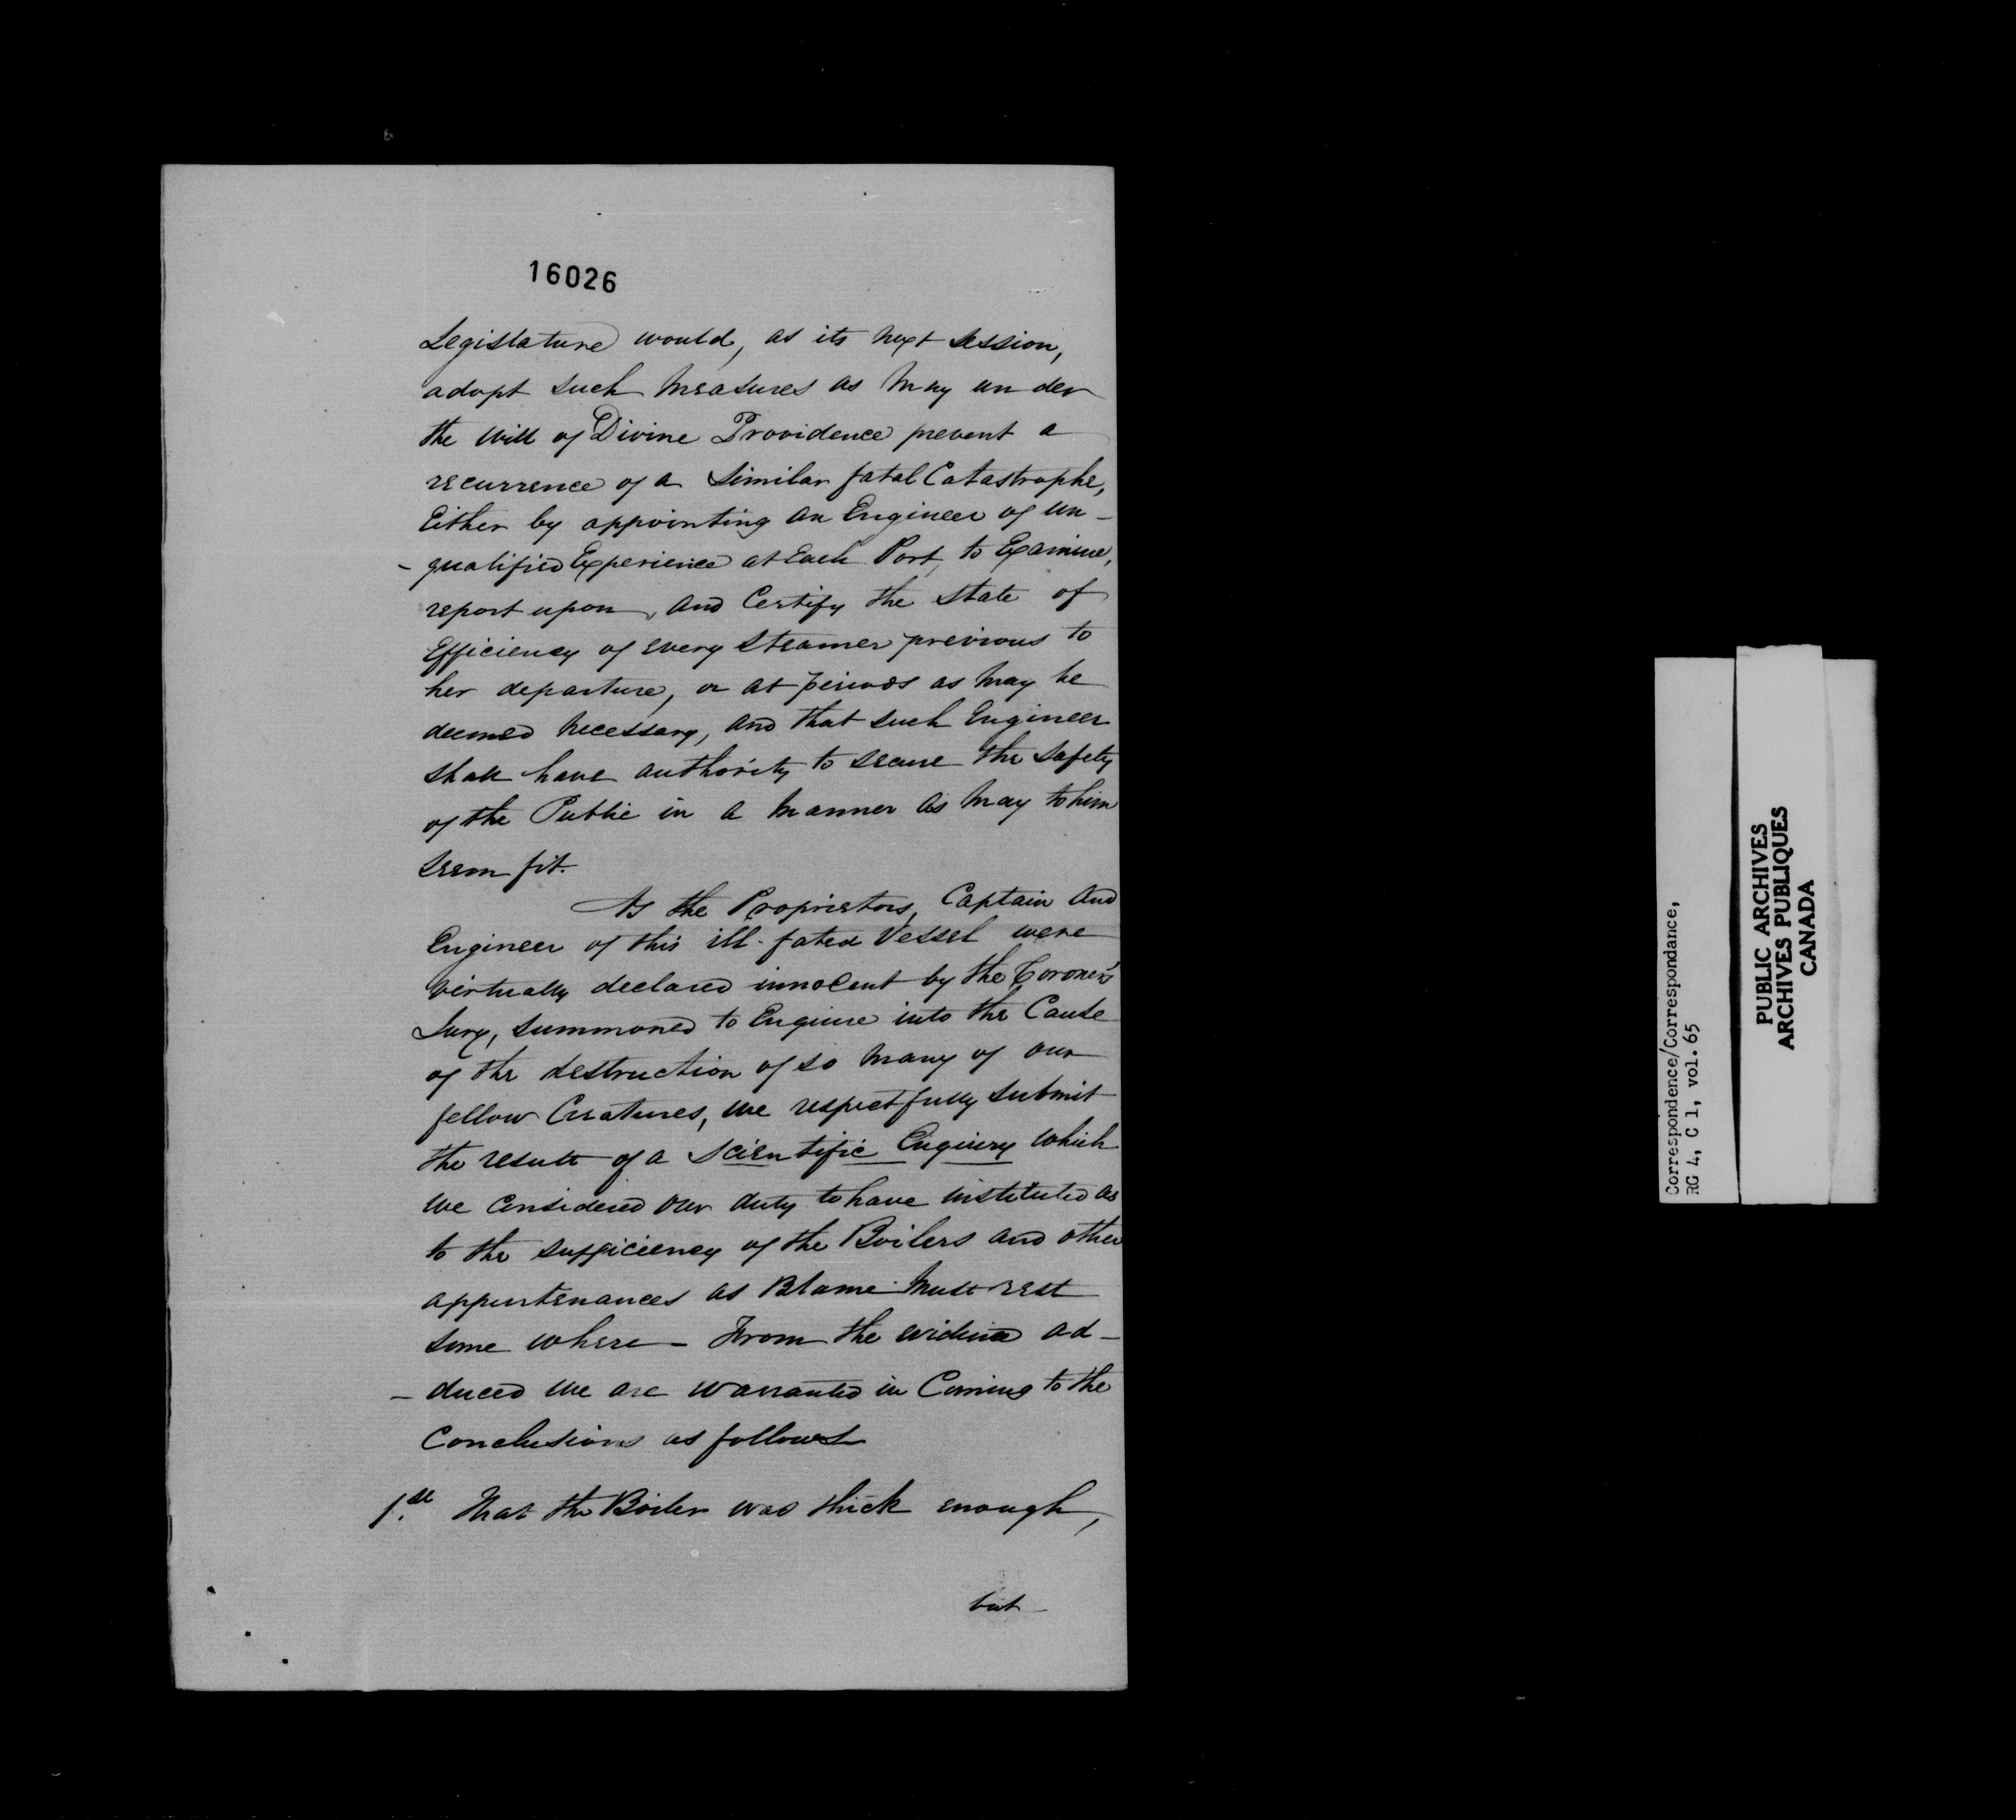 16026
Legislature would, as its next session,
adopt such measures as may un der
the will of Divine Providence prevent a
recurrence of a similar fatal Catastrophe,
Either by appointing an Engineer of un-
- qualified Experience at Each Port, to Examine,
report upon, and Certify the state of
Efficiency of every steamer previous to
her departure, or at periods as may be
deemed necessary, and that such Engineer
shall have authority to secure the safety
of the Public in a manner as may to him
seem fit.
As the Proprietors, Captain and
Engineer of this ill-fated Vessel were
virtually declared innocent by the Coroner's
Jury, summoned to Enquire into the Cause
of the destruction of so many of our
fellow Creatures, we respectfully submit
the result of a Scientific Enquiry which
we considered our duty to have instituted as
to the sufficiency of the Boilers and other
appurtenances as Blame must rest
some where - From the evidence ad-
- duced we are warranted in Coming to the
Conclusions as follows
1.st That the Boiler was thick enough,
but
Correspondence/Correspondance,
RG 4, C 1, vol. 65
PUBLIC ARCHIVES
ARCHIVES PUBLIQUES
CANADA